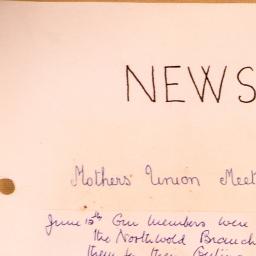 NEWS
Mothers' Union Meet
June 15th Our members were
the Northwold Branch
them to their Outing